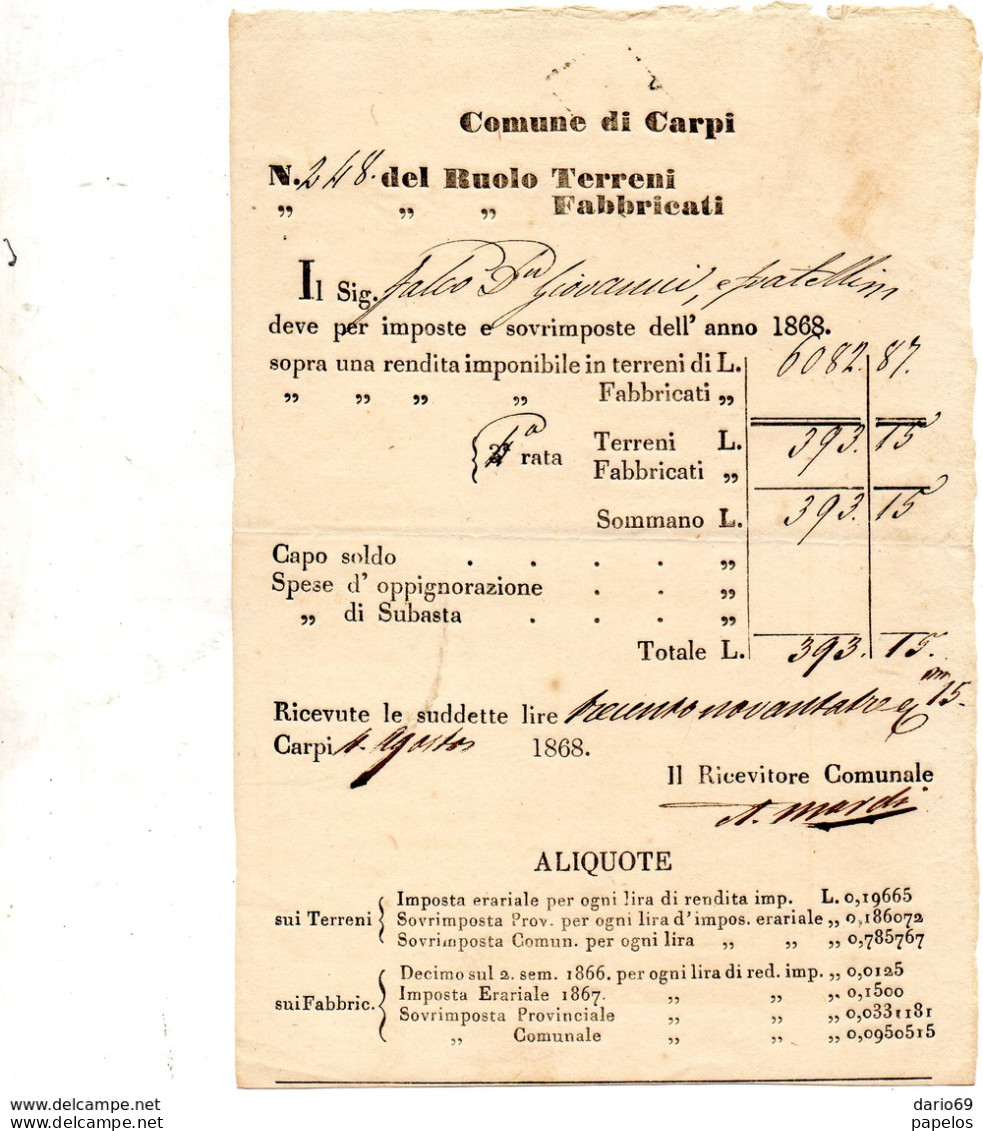 Comune di Carpi
N. 248. del Ruolo Terreni
„ „ „ Fabbricati
Il Sig. Giovanni, e fratelli
deve per imposte e sovrimposte dell' anno 1868.
sopra una rendita imponibile in terreni di L. 6082. 87.
„ „ „ „ Fabbricati „
rata Terreni L. 393. 15
Fabbricati „
Sommano L. 393. 15
Capo soldo . . . . „
Spese d' oppignorazione . . „
„ di Subasta . . . „
Totale L. 393. 15.
Ricevute le suddette lire trecentonovantatre 15.
Carpi Agosto 1868.
Il Ricevitore Comunale
ALIQUOTE
sui Terreni { Imposta erariale per ogni lira di rendita imp. L. 0,19665
Sovrimposta Prov. per ogni lira d'impos. erariale „ 0,186072
Sovrimposta Comun. per ogni lira „ „ „ 0,785767
sui Fabbric. { Decimo sul 2. sem. 1866. per ogni lira di red. imp. „ 0,0125
Imposta Erariale 1867. „ „ „. 0,1500
Sovrimposta Provinciale „ „ „ 0,0331181
„ Comunale „ „ „ 0,0950515
Copyright : www.delcampe.net/www.delcampe.net
dario69
papelos